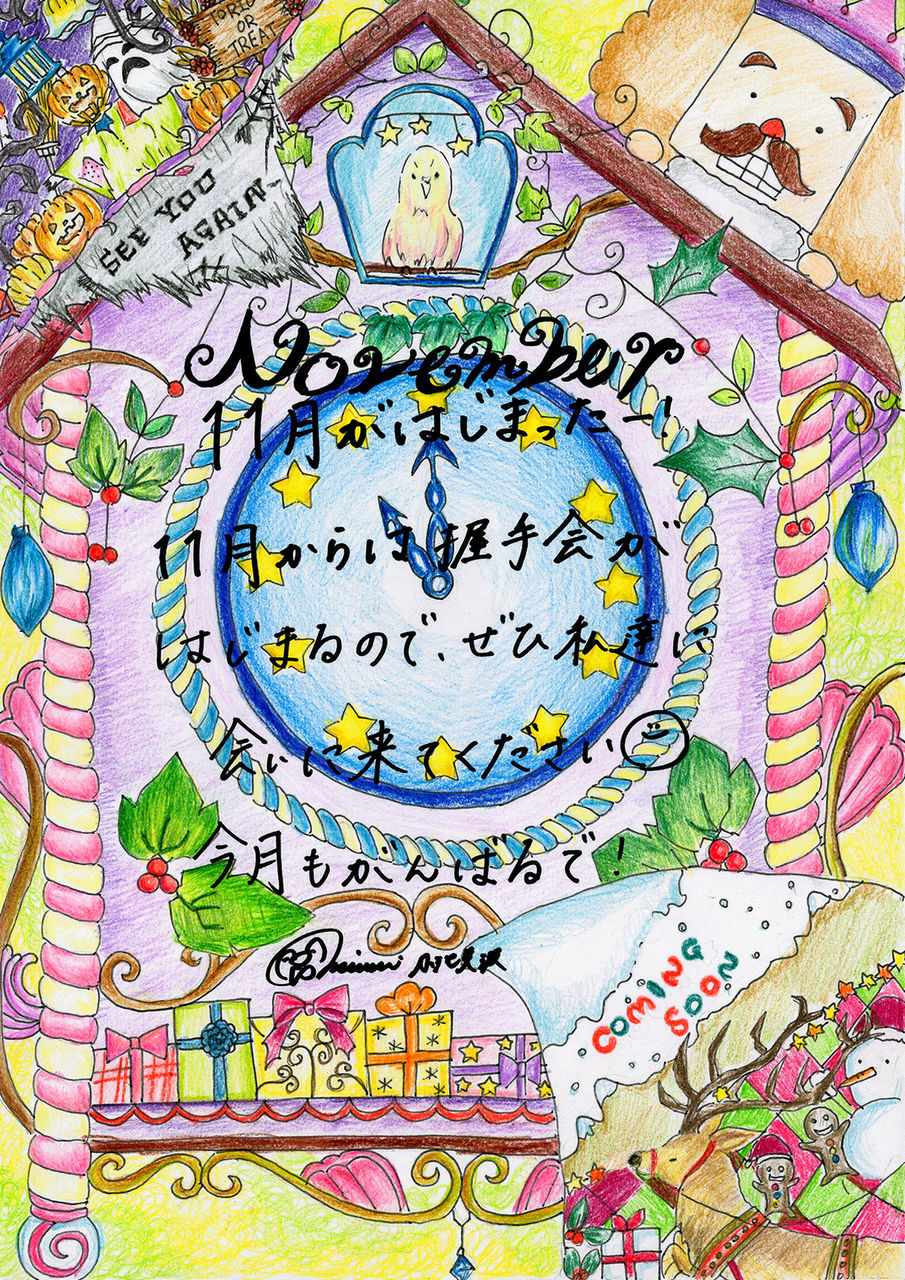 TORICK
OR
TREAT
SEE YOU
AGAIN
November
11月がはじまったー!
11月からは握手会が
はじまるので、ぜひ私達に
会いに来てください
今月もがんばるで!
COMING
SOON